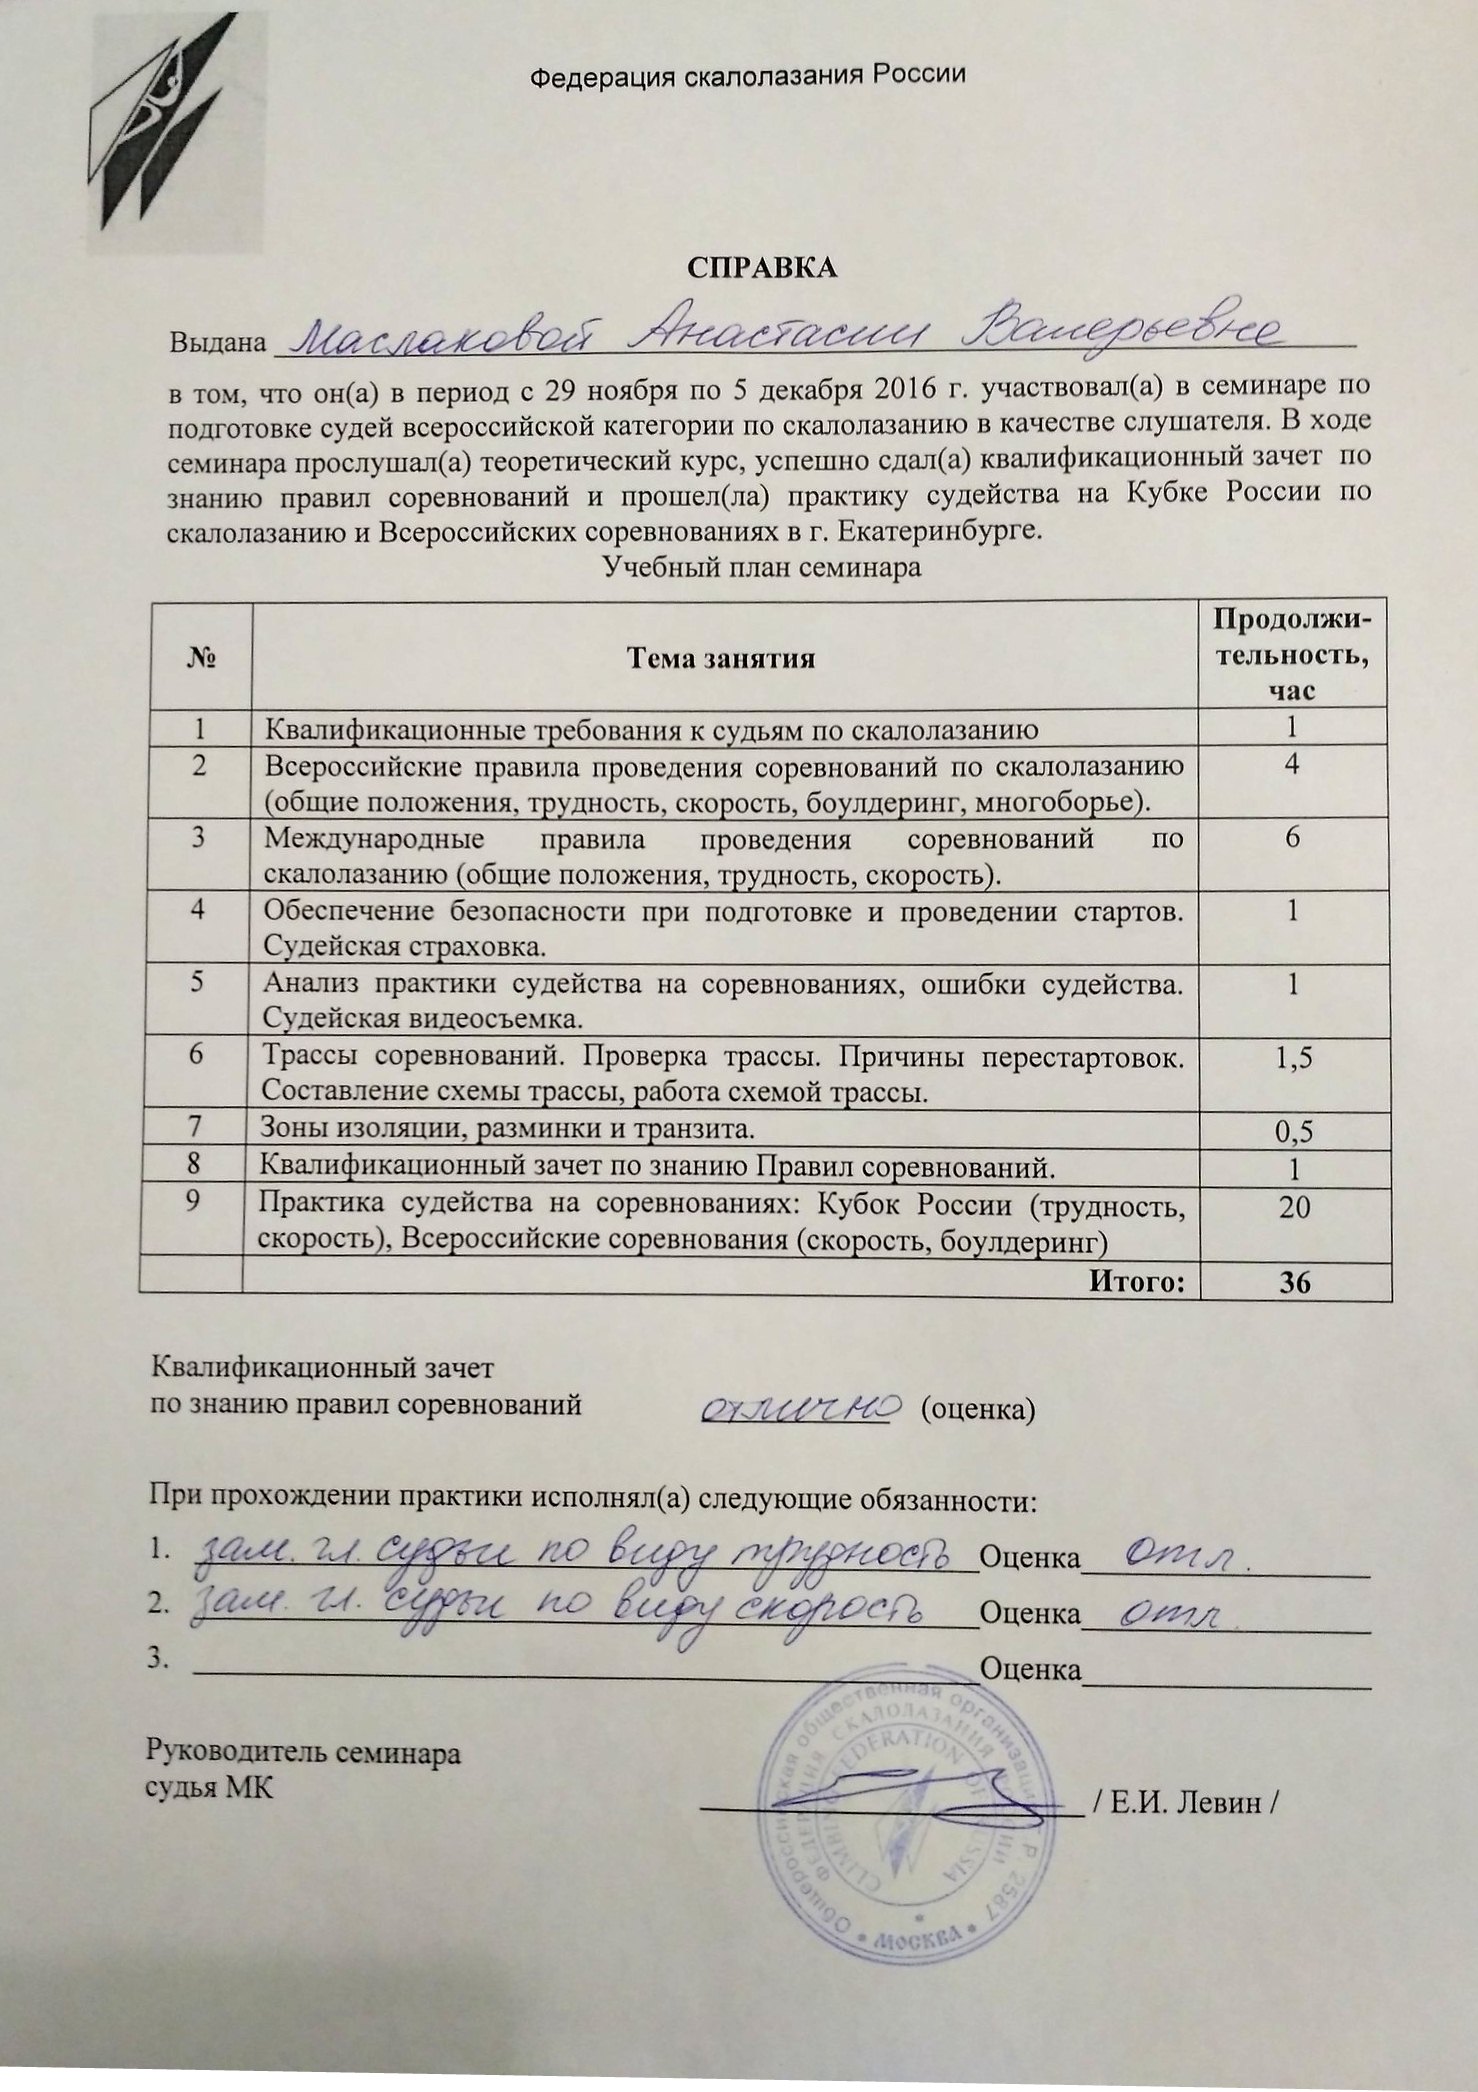 Федерация скалолазания России
СПРАВКА
Выдана Маслаковой Анастасии Валерьевне
в том, что он(а) в период с 29 ноября по 5 декабря 2016 г. участвовал(а) в семинаре по
подготовке судей всероссийской категории по скалолазанию в качестве слушателя. В ходе
семинара прослушал(а) теоретический курс, успешно сдал(а) квалификационный зачет по
знанию правил соревнований и прошел(ла) практику судейства на Кубке России по
скалолазанию и Всероссийских соревнованиях в г. Екатеринбурге.
Учебный план семинара
№ Тема занятия Продолжи-
тельность,
час
1 Квалификационные требования к судьям по скалолазанию 1
2 Всероссийские правила проведения соревнований по скалолазанию 4
(общие положения, трудность, скорость, боулдеринг, многоборье).
3 Международные правила проведения соревнований по 6
скалолазанию (общие положения, трудность, скорость).
4 Обеспечение безопасности при подготовке и проведении стартов. 1
Судейская страховка.
5 Анализ практики судейства на соревнованиях, ошибки судейства. 1
Судейская видеосъемка.
6 Трассы соревнований. Проверка трассы. Причины перестартовок. 1,5
Составление схемы трассы, работа схемой трассы.
7 Зоны изоляции, разминки и транзита. 0,5
8 Квалификационный зачет по знанию Правил соревнований. 1
9 Практика судейства на соревнованиях: Кубок России (трудность, 20
скорость), Всероссийские соревнования (скорость, боулдеринг)
Итого: 36
Квалификационный зачет
по знанию правил соревнований отлично (оценка)
При прохождении практики исполнял(а) следующие обязанности:
1. зам. гл. судьи по виду трудность Оценка отл.
2. зам. гл. судьи по виду скорость Оценка отл.
3. Оценка
Руководитель семинара
судья МК / Е.И. Левин /
Общероссийская общественная организация
ФЕДЕРАЦИЯ СКАЛОЛАЗАНИЯ РОССИИ
CLIMBING FEDERATION OF RUSSIA
Р 2587
* МОСКВА *